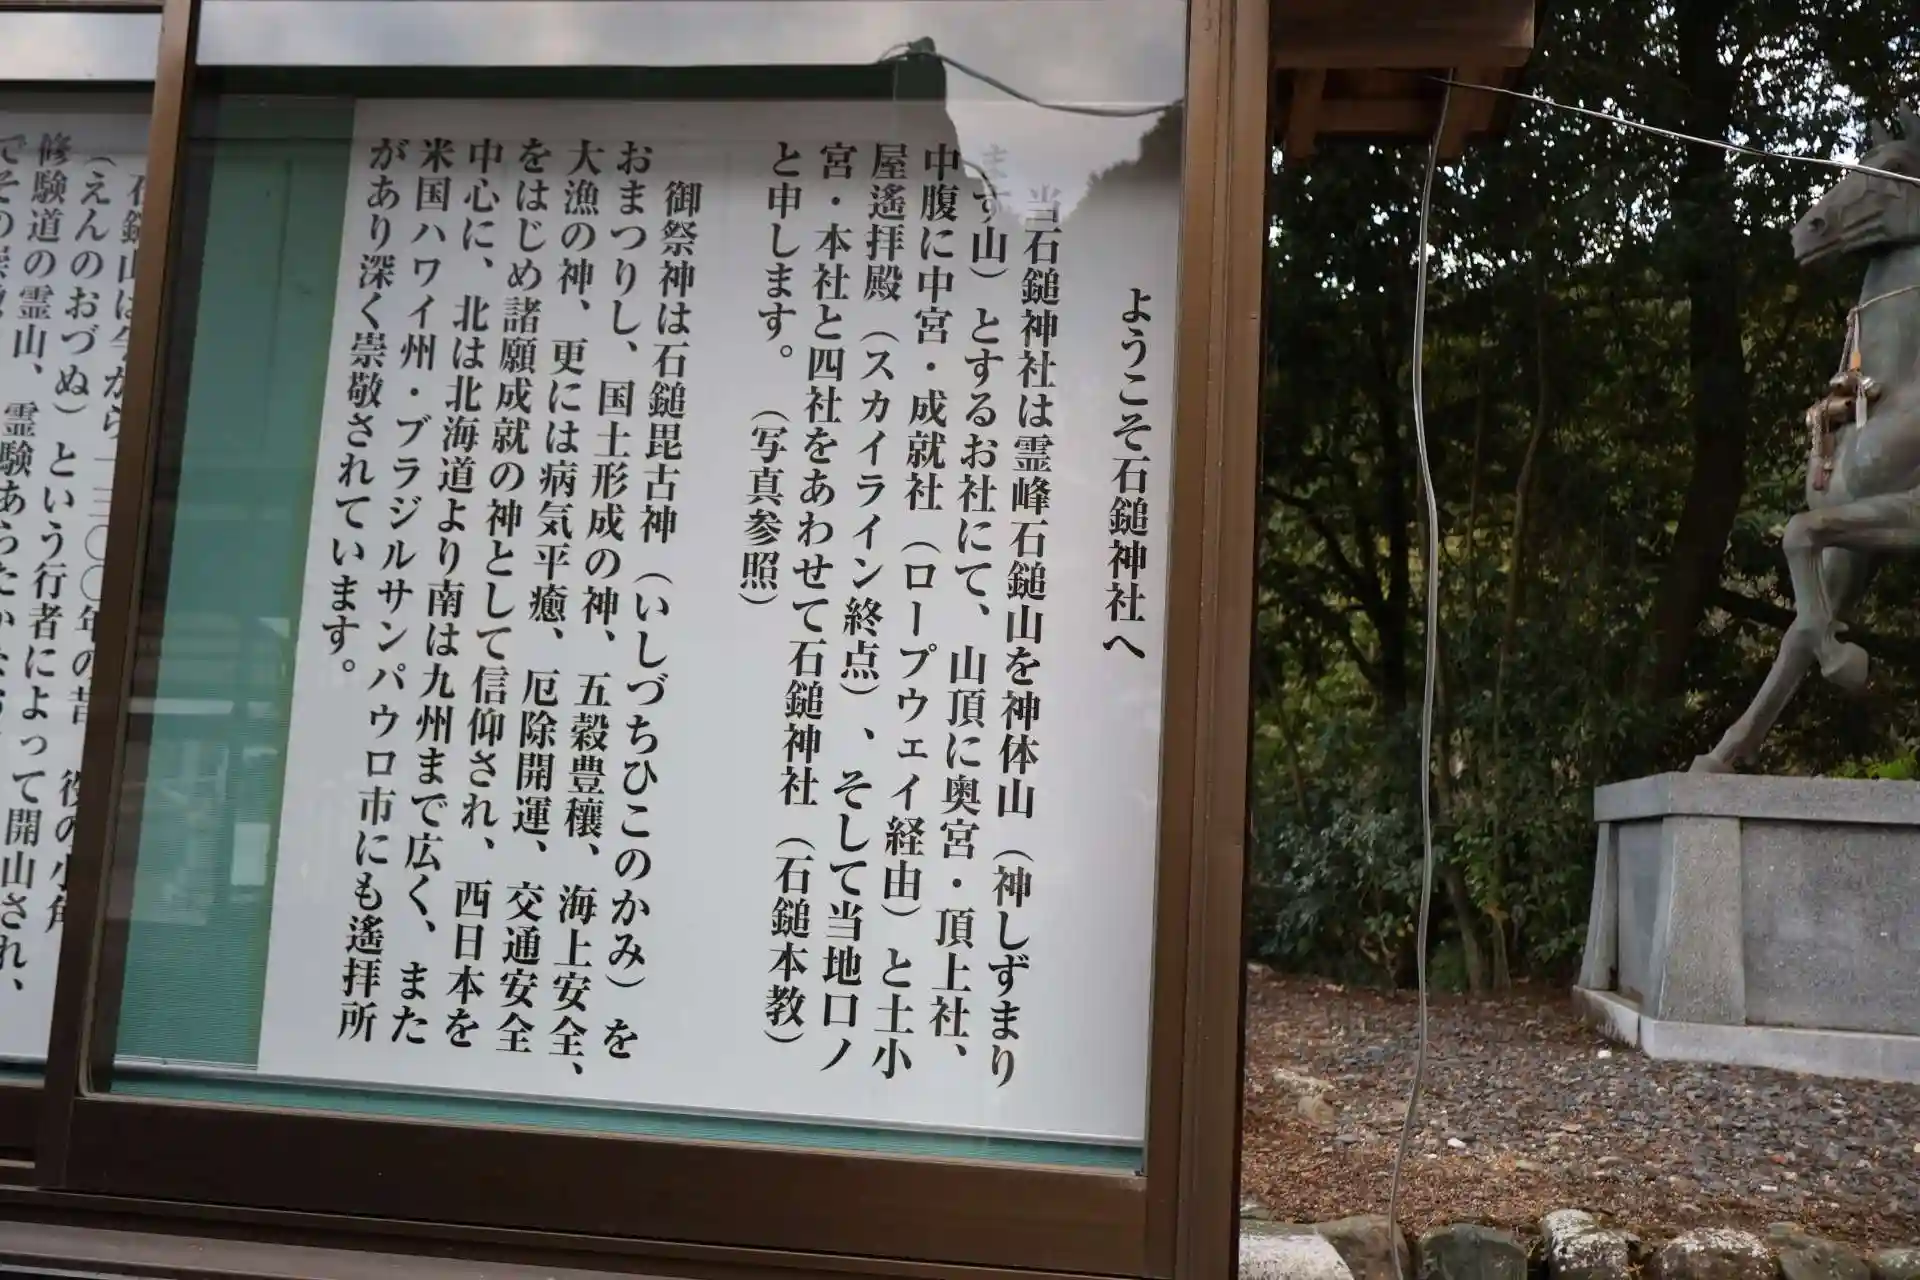 ようこそ石鎚神社へ
当石鎚神社は霊峰石鎚山を神体山（神しずまり
ます山）とするお社にて、山頂に奥宮・頂上社、
中腹に中宮・成就社（ロープウェイ経由）と土小
屋遙拝殿（スカイライン終点）、そして当地口ノ
宮・本社と四社をあわせて石鎚神社（石鎚本教）
と申します。（写真参照）
御祭神は石鎚毘古神（いしづちひこのかみ）を
おまつりし、国土形成の神、五穀豊穣、海上安全、
大漁の神、更には病気平癒、厄除開運、交通安全
をはじめ諸願成就の神として信仰され、西日本を
中心に、北は北海道より南は九州まで広く、また
米国ハワイ州・ブラジルサンパウロ市にも遙拝所
があり深く崇敬されています。
石鎚山は今から一三〇〇年の昔　役の小角
（えんのおづぬ）という行者によって開山され、
修験道の霊山、霊験あらたかな
でその